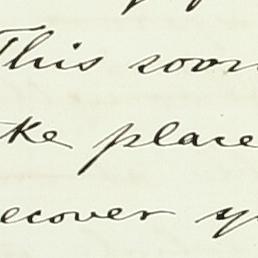 This soon
ke place
ecover